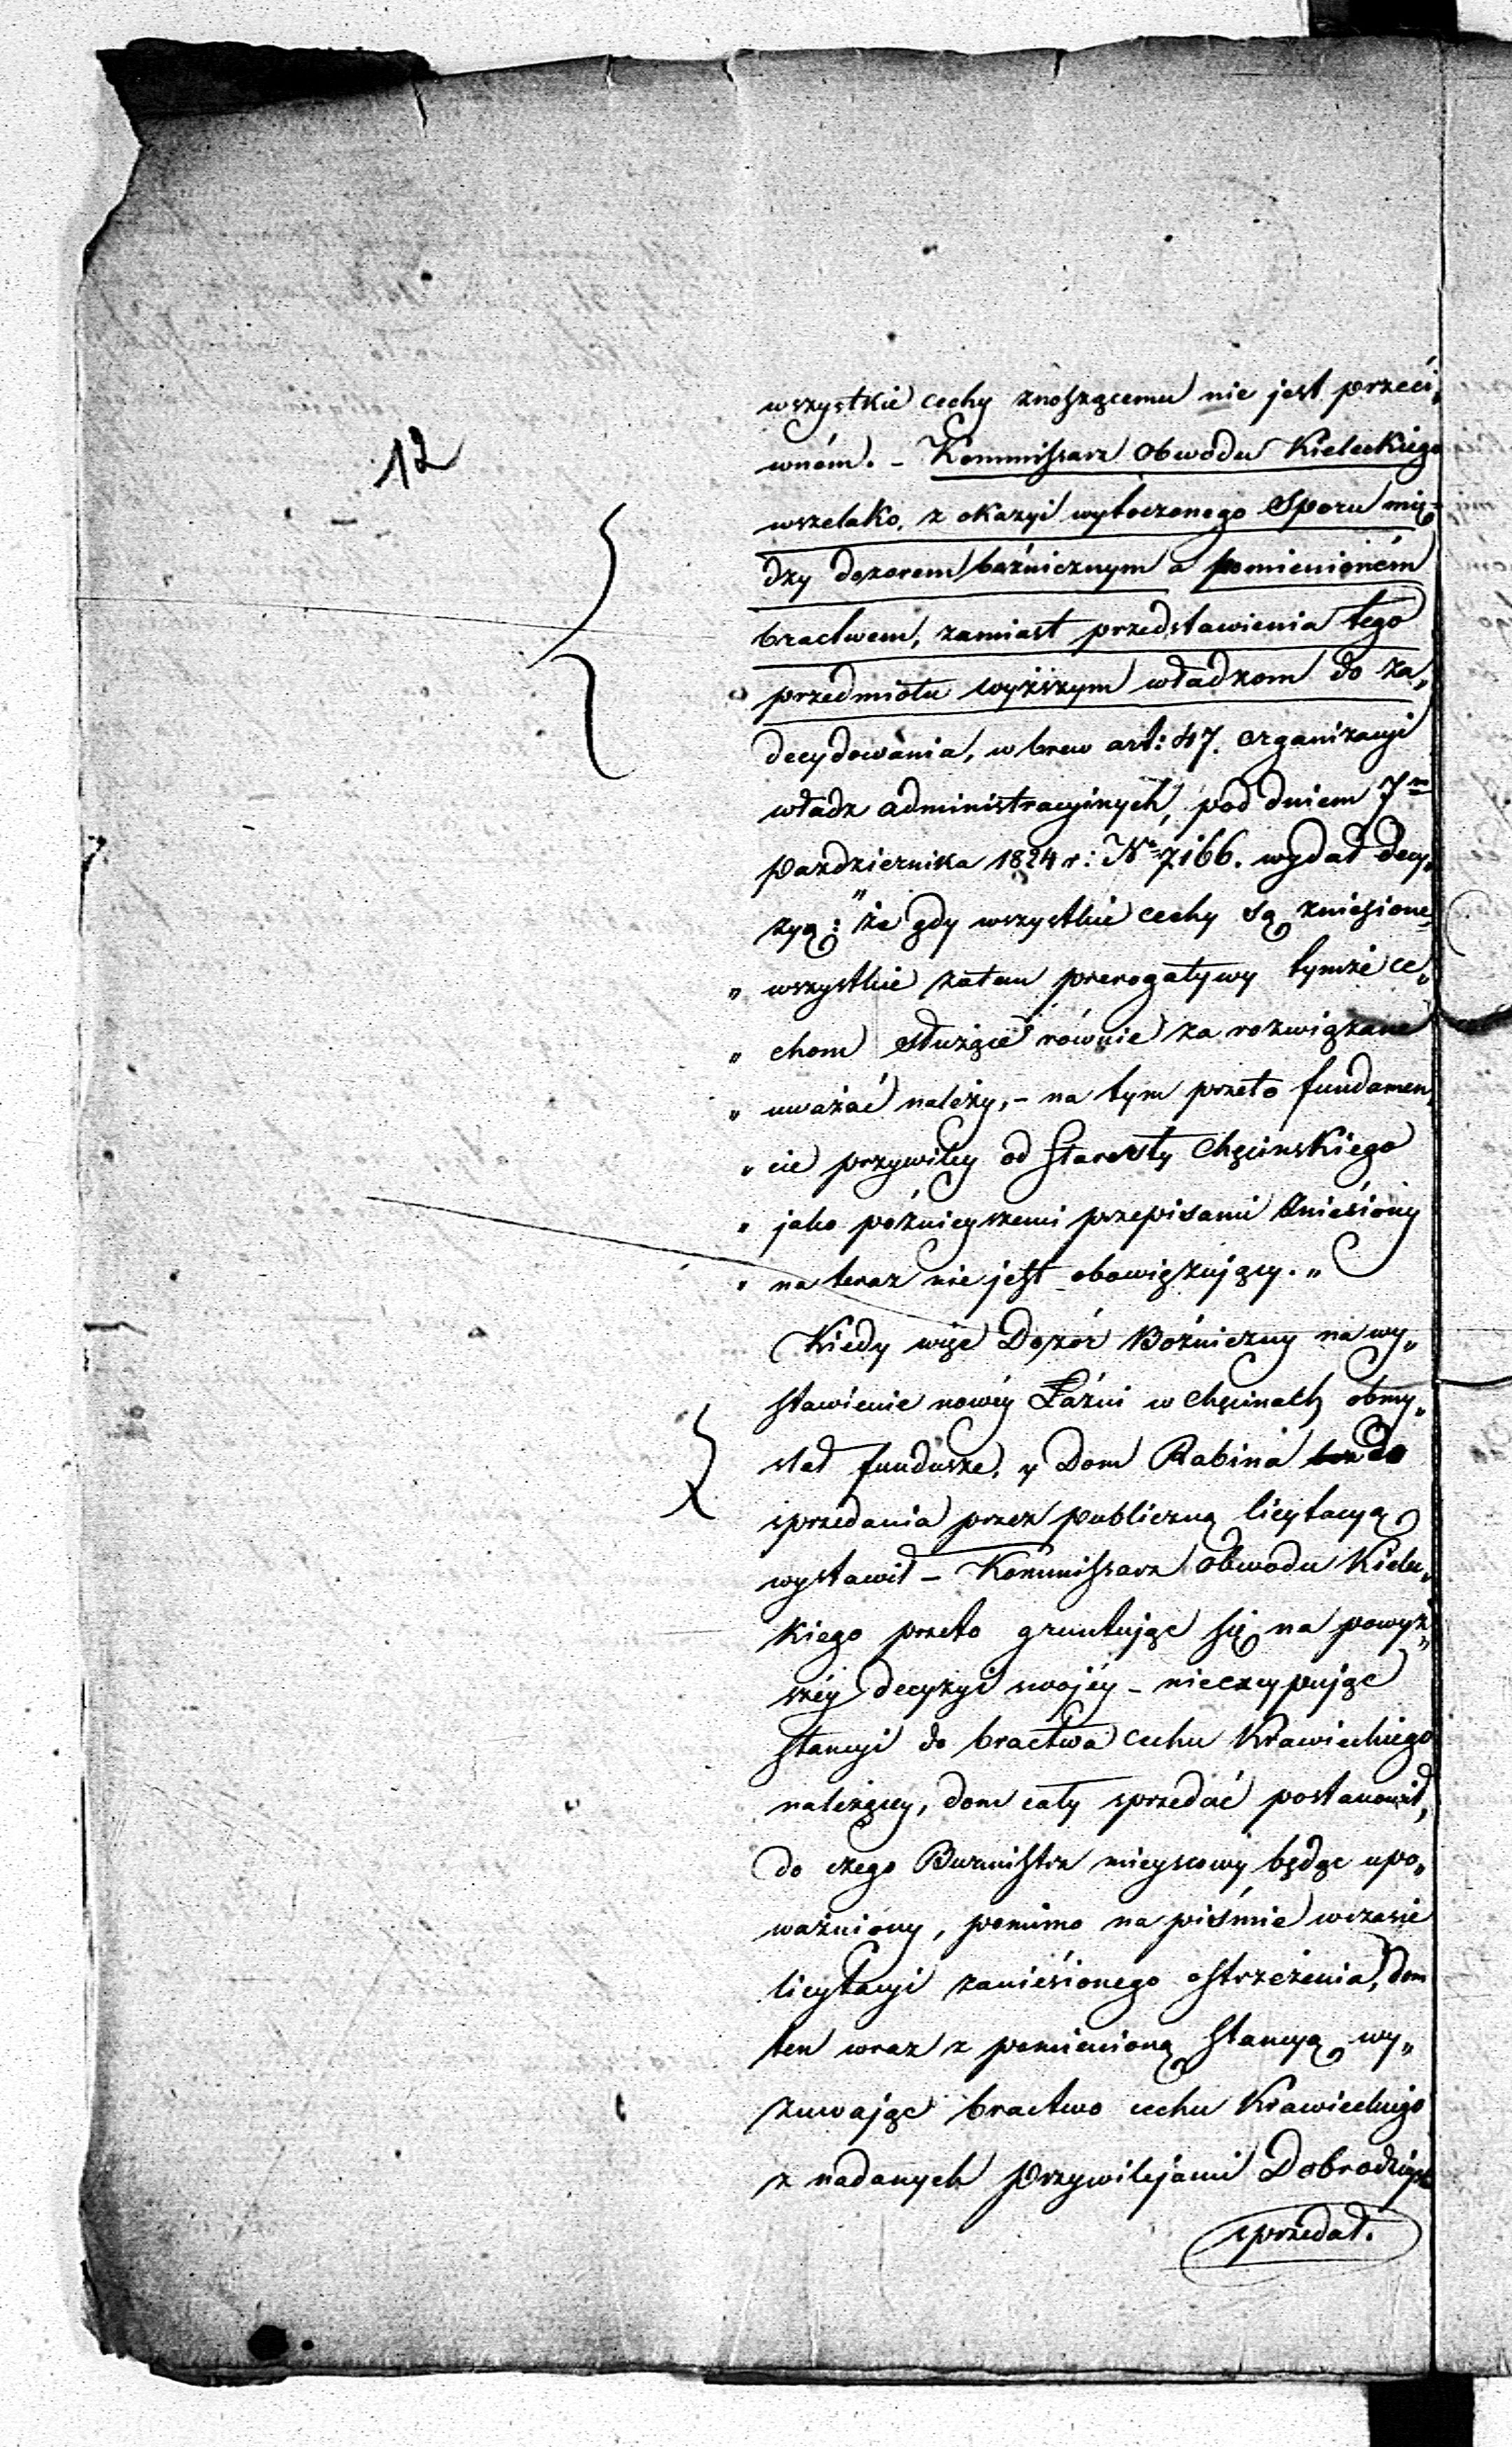 12
wszystkie cechy znoszącemu nie jest przeci„
wnóm. – Kommissarz Obwodu Kieleckiego
wszelako, z okazyi wytoczonego Sporu mię=
dzy dozorem bóżnicznym a pomienioném
bractwem, zamiast przedstawienia tego
przedmiotu wyższym władzom do za„
decydowania, wbrew art: 47. organizacyi
władz administracyinych, pod dniem 7m
Października 1824 r: No 7166. wydał decy„
zyą: „że gdy wszystkie cechy są zniesione
„ wszystkie zatem prerogatywy tymże ce„
„ chom służące równie za rozwiązane
„ uważać należy, – na tym przeto fundamen„
„ cie przywiley od Starosty Chęcinskiego
„ jako poźnieyszemi przepisami zniesiony
„ na teraz nie jest obowiązujący. „
Kiedy więc Dozór Bóżniczny na wy„
stawienie nowéy Łaźni w Chęcinach obmy„
slał fundusze, y Dom Rabina do
sprzedania przez publiczną licytacyą
wystawił – Kommissarz obwodu Kielec„
kiego przeto gruntując się na powyż„
széy decyzyi swojéy – nieexcypując
stancyi do bractwa cechu Krawieckiego
należący, dom cały sprzedać postanowił,
do czego Burmistrz mieyscowy będąc upo„
ważniony, pomimo na piśmie wczasie
licytacyi zaniesionego ostrzeżenia, dom
ten wraz z pomienioną stancyą wy„
zuwając bractwo cechu Krawieckiego
z nadanych Przywilejami Dobrodziejst
sprzedał.